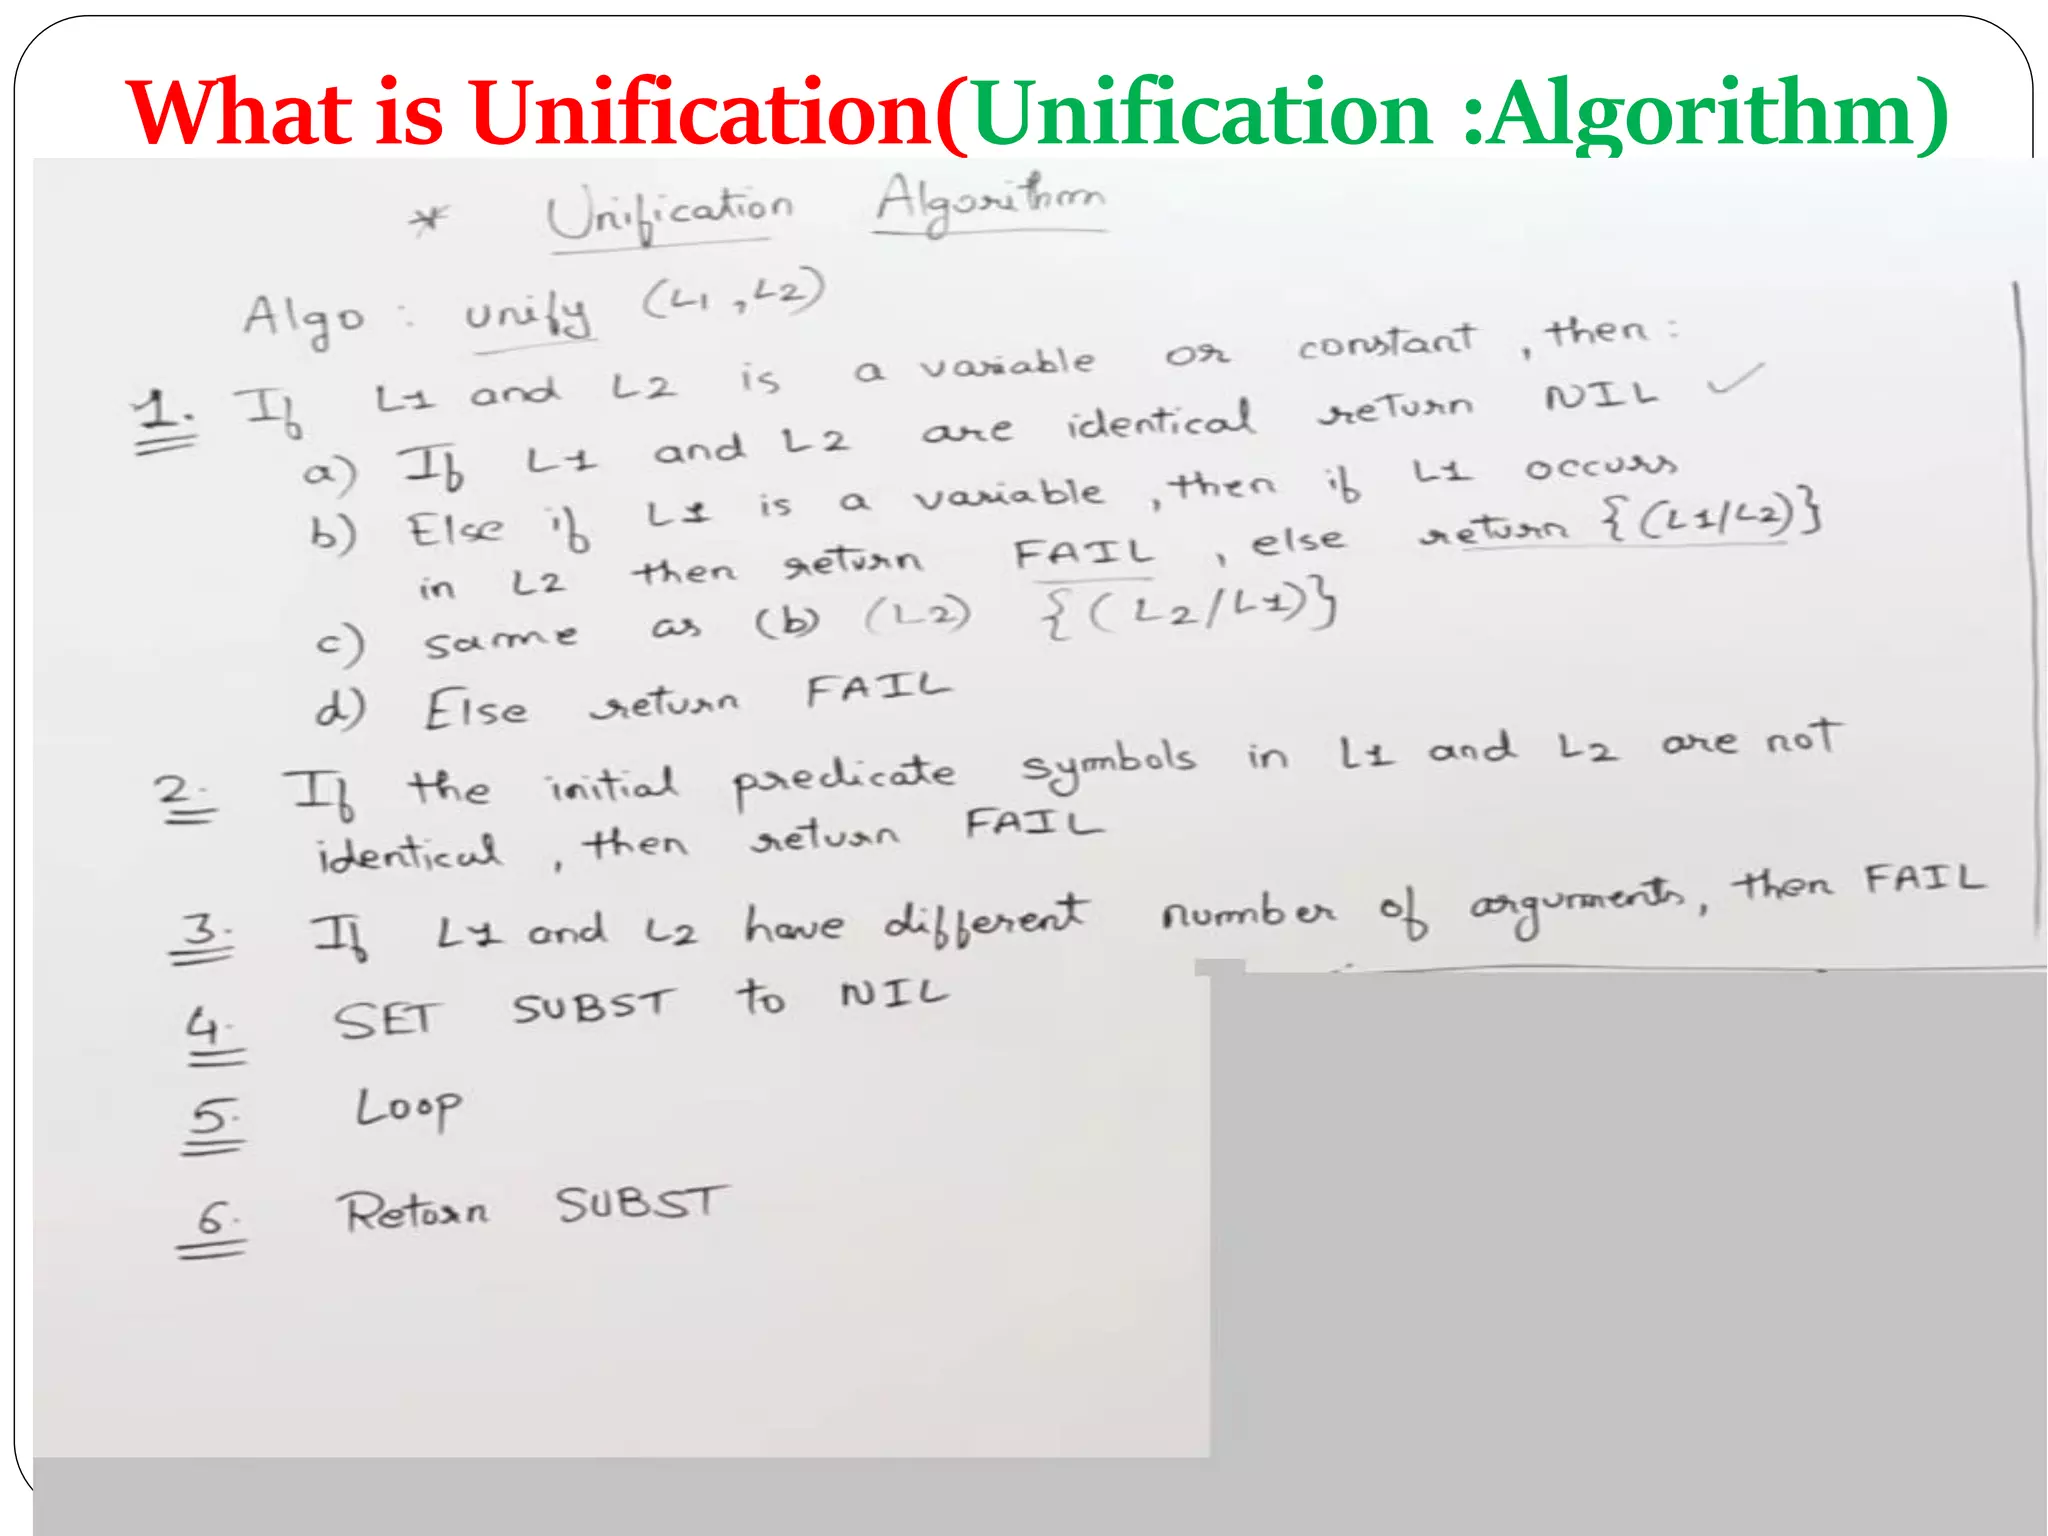 What is Unification(Unification :Algorithm)
* Unification Algorithm
Algo : unify (L1, L2)
1. If L1 and L2 is a variable or constant, then :
a) If L1 and L2 are identical return NIL ✓
b) Else if L1 is a variable, then if L1 occurs
in L2 then return FAIL, else return {(L1/L2)}
c) same as (b) (L2) {(L2/L1)}
d) Else return FAIL
2. If the initial predicate symbols in L1 and L2 are not
identical, then return FAIL
3. If L1 and L2 have different number of arguments, then FAIL
4. SET SUBST to NIL
5. Loop
6. Return SUBST